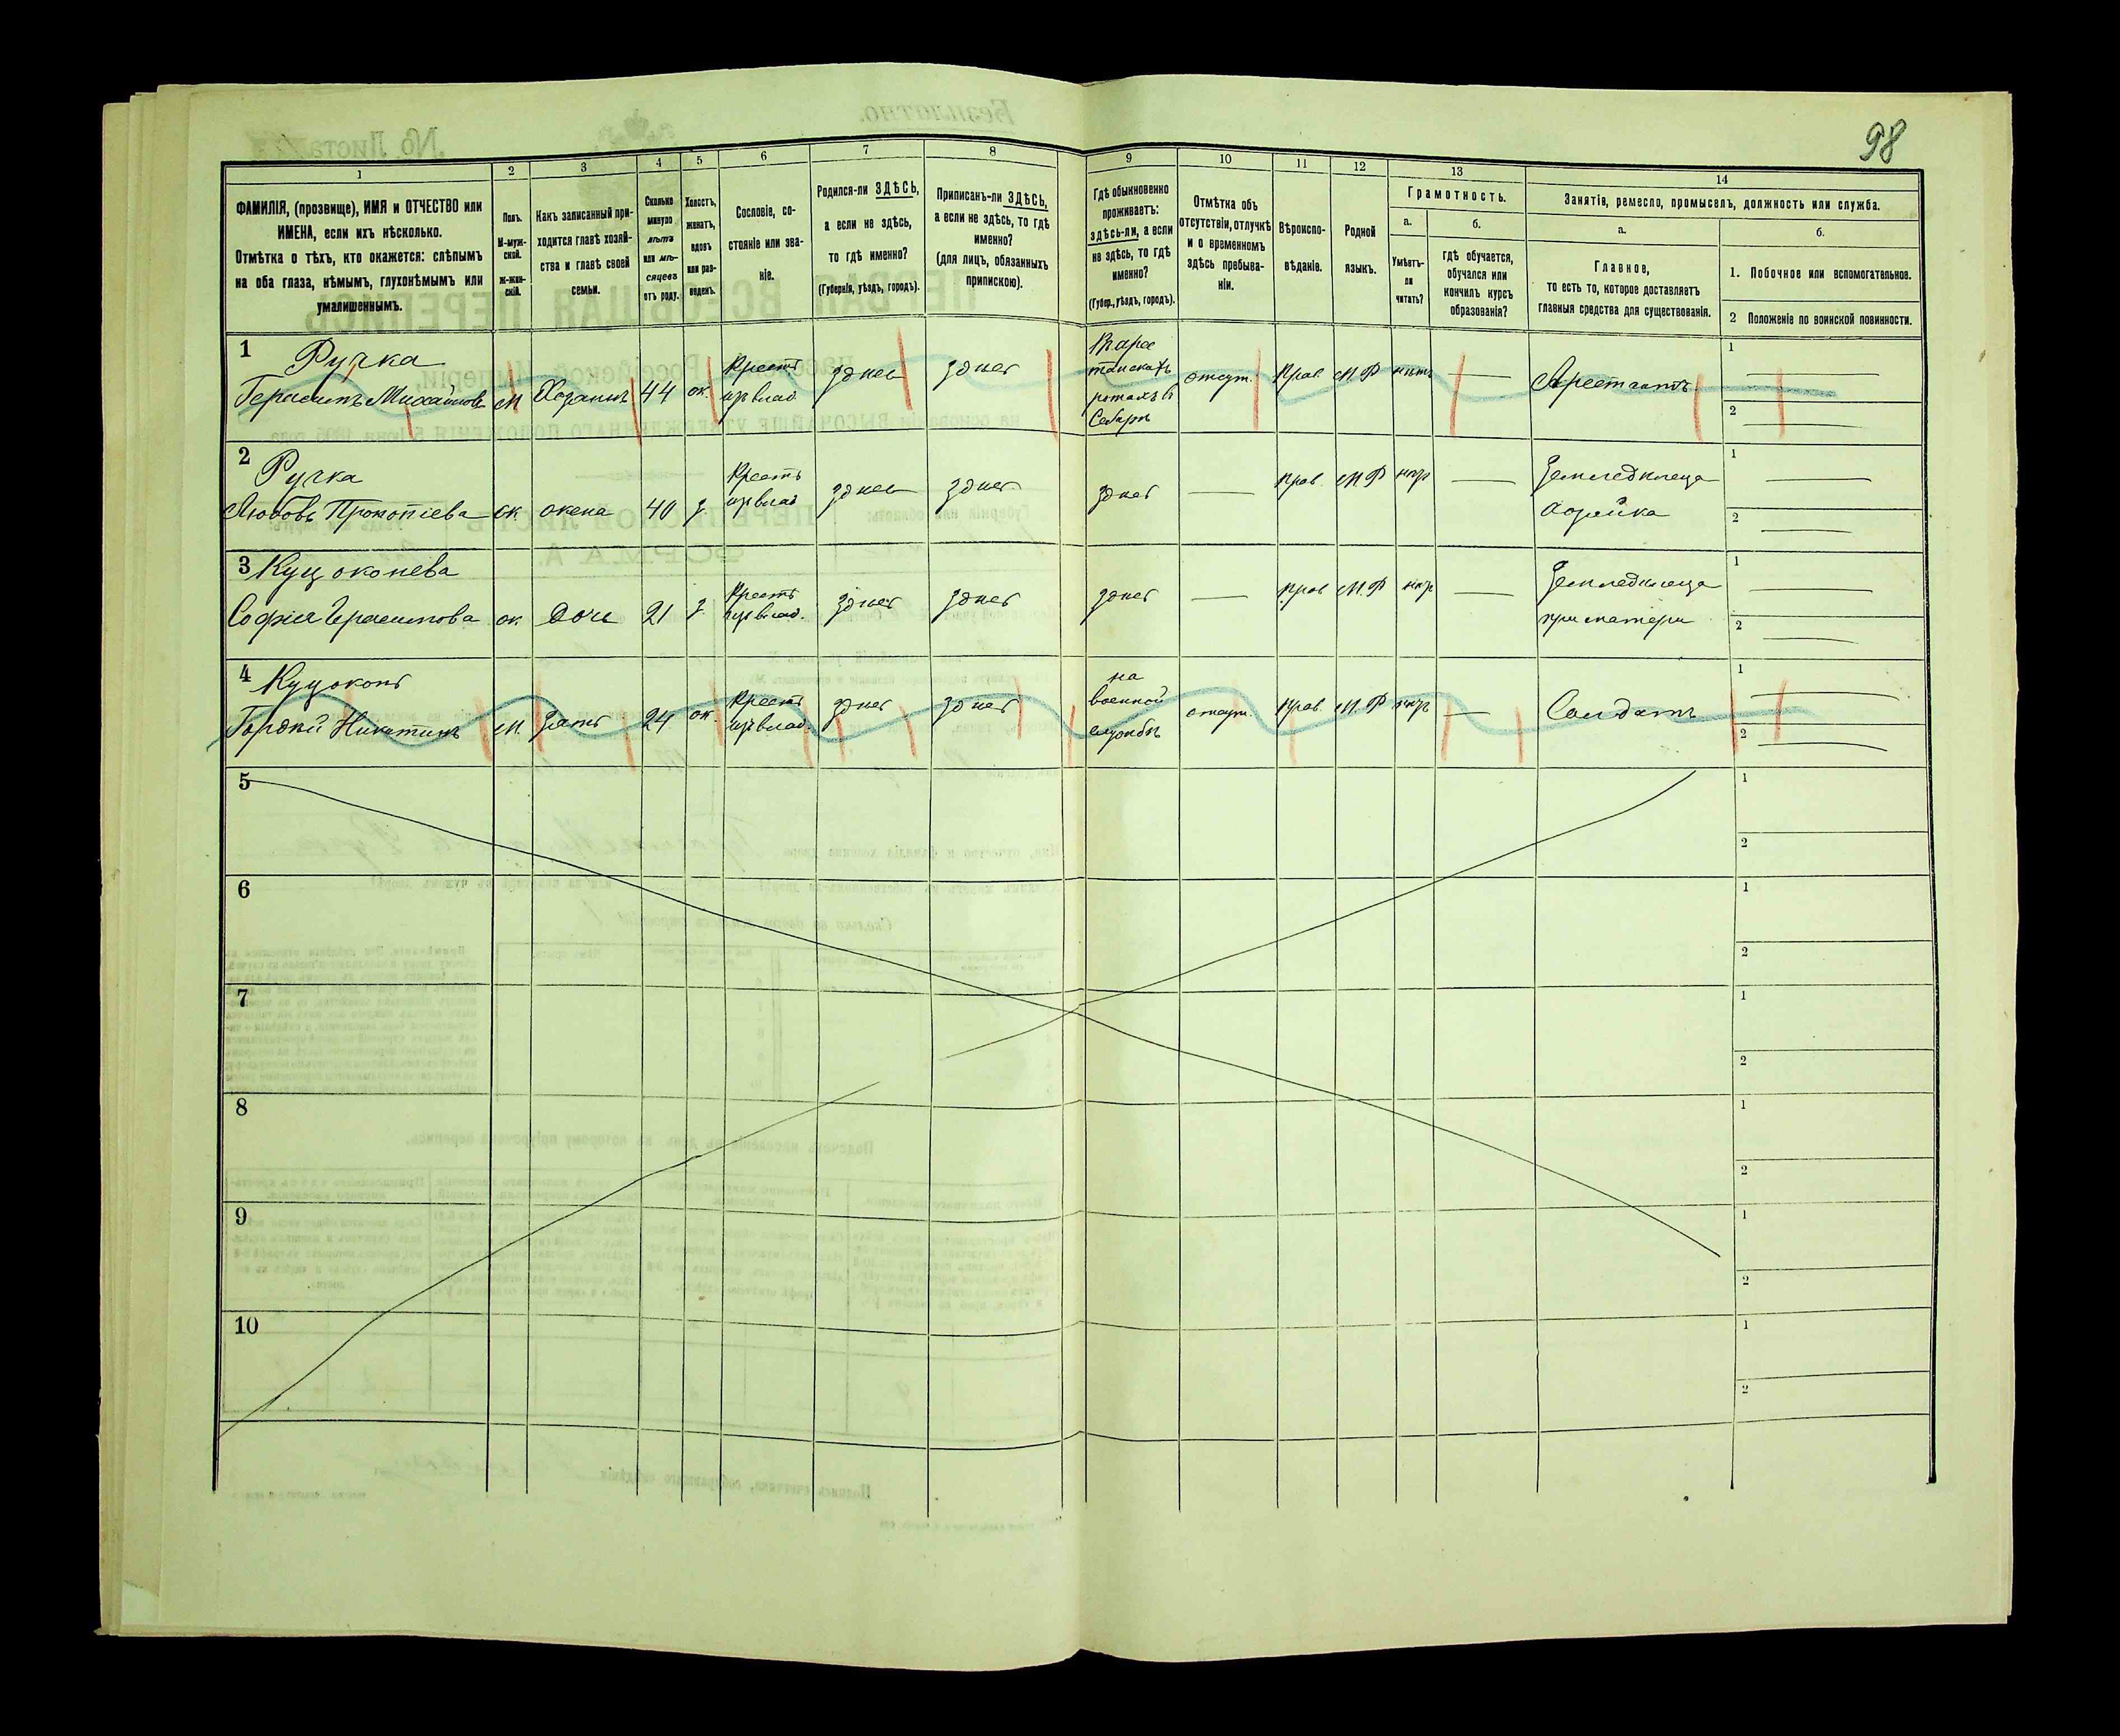 98
1
2
3
4
5
6
7
8
9
10
11
12
13
14
ФАМИЛІЯ, (прозвище), ИМЯ и ОТЧЕСТВО или
ИМЕНА, если ихъ нѣсколько.
Отмѣтка о тѣхъ, кто окажется: слѣпымъ
на оба глаза, нѣмымъ, глухонѣмымъ или
умалишеннымъ.
Полъ.
М-муж-
ской.
ж-жен-
скій.
Какъ записанный при-
ходится главѣ хозяй-
ства и главѣ своей
семьи.
Сколько
минуло
лѣтъ
или мѣ-
сяцевъ
отъ роду.
Холостъ,
женатъ,
вдовъ
или раз-
веденъ.
Сословіе, со-
стояніе или зва-
ніе.
Родился-ли ЗДѢСЬ,
а если не здѣсь,
то гдѣ именно?
(Губернія, уѣздъ, городъ).
Приписанъ-ли ЗДѢСЬ,
а если не здѣсь, то гдѣ
именно?
(для лицъ, обязанныхъ
припискою).
Гдѣ обыкновенно
проживаетъ:
здѣсь-ли, а если
не здѣсь, то гдѣ
именно?
(Губер., уѣздъ, городъ).
Отмѣтка объ
отсутствіи, отлучкѣ
и о временномъ
здѣсь пребыва-
ніи.
Вѣроиспо-
вѣданіе.
Родной
языкъ.
Грамотность.
а.
Умѣетъ-
ли
читать?
б.
гдѣ обучается,
обучался или
кончилъ курсъ
образованія?
Занятіе, ремесло, промыселъ, должность или служба.
а.
Главное,
то есть то, которое доставляетъ
главныя средства для существованія.
б.
1. Побочное или вспомогательное.
2 Положеніе по воинской повинности.
1 Ручка
Герасимъ Михайловъ м Хозяинъ 44 ж. Крестъ изъ влад. здѣсь здѣсь отсут. Прав. М.Р нѣтъ — Арестантъ
1 —
2 —
2 Ручка
Любовь Прокопіева ж. жена 40 з. Крестъ изъ влад здѣсь здѣсь здѣсь — прав. М.Р Земледѣлица хозяйка
1 —
2 —
3 Куцоконева
Софія Герасимова ж. дочь 21 з. Крестъ изъ влад. здѣсь здѣсь здѣсь — прав М.Р — Земледѣлица при матери
1 —
2 —
4 Куцоконь
Гордѣй Никитинъ м. зять 24 ж. Крестъ изъ влад. здѣсь здѣсь на военной службѣ отсут. прав. М.Р — Солдатъ
1 —
2 —
5
1
2
6
1
2
7
1
2
8
1
2
9
1
2
10
1
2